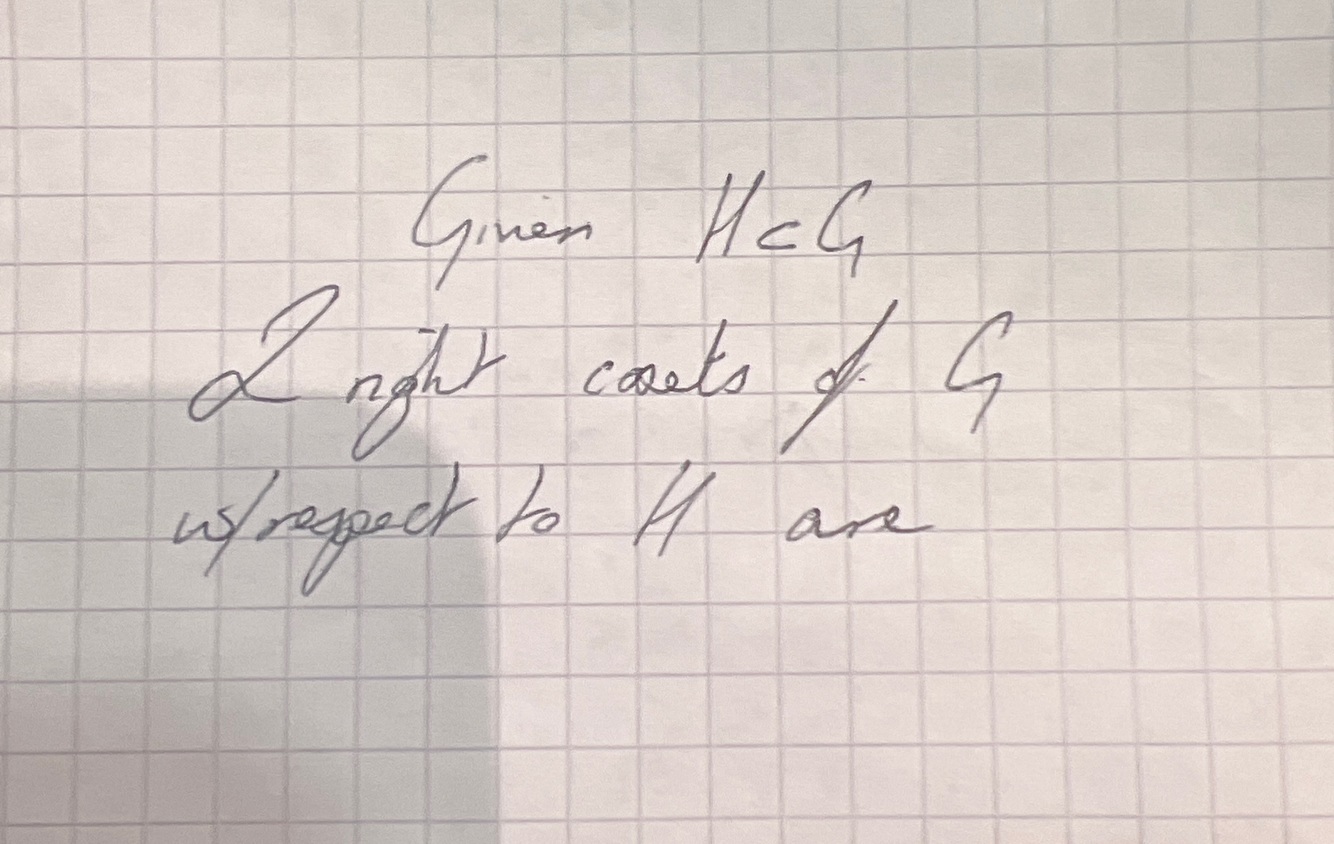 Given H ⊂ G
2 right cosets of G
w/respect to H are